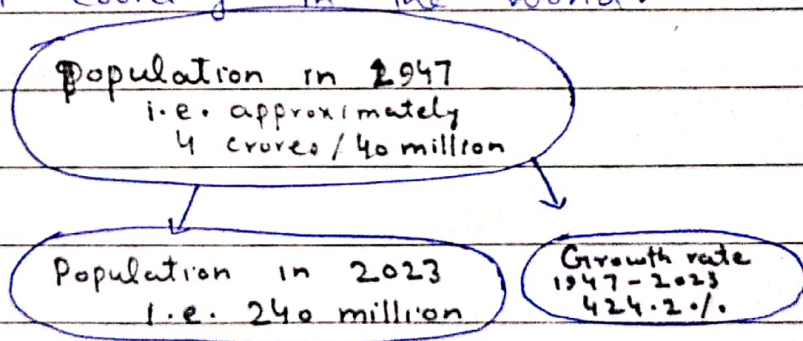 in the world.
Population in 1947
i.e. approximately
4 crores / 40 million
Population in 2023
i.e. 240 million
Growth rate
1947 - 2023
424.2%